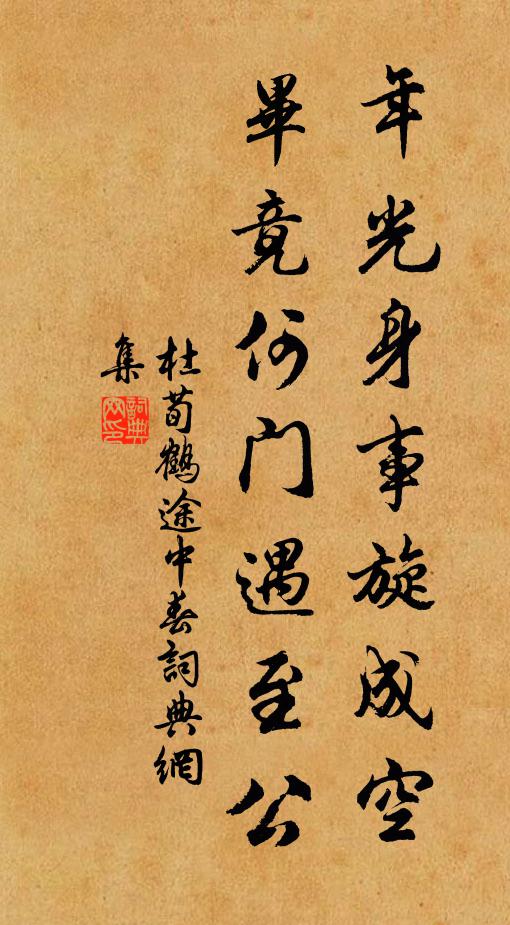 年光身事旋成空
畢竟何門遇至公
杜荀鶴途中春詞典網
集
詞典網印